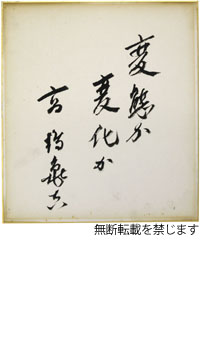 変態か
変化か
高橋亀吉
無断転載を禁じます